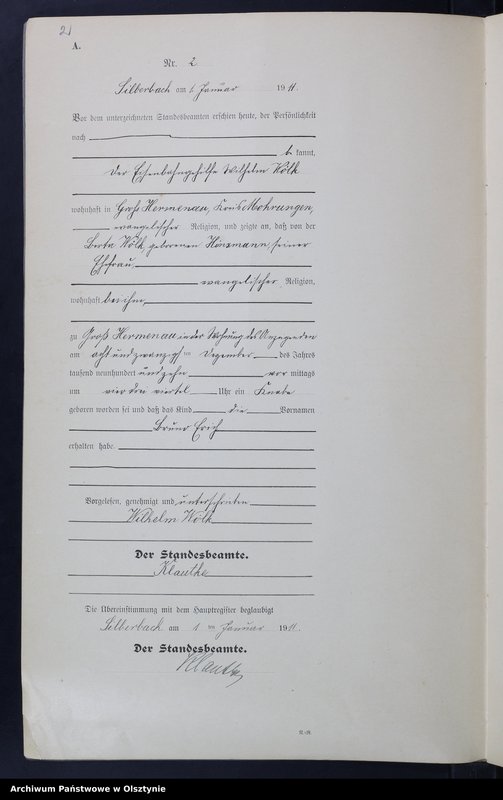 21
A.
Nr. 2
Silberbach am 1 Januar 1911.
Vor dem unterzeichneten Standesbeamten erschien heute, der Persönlichkeit
nach
be kannt,
der Eisenbahngehilfe Wilhelm Wölk
wohnhaft in Groß Hermenau, Kreis Mohrungen,
evangelischer Religion, und zeigte an, daß von der
Berta Wölk, geborenen seiner
Ehefrau
evangelischer Religion,
wohnhaft bei ihm,
zu Groß Hermenau in der Wohnung des Anzeigenden
am acht und zwanzigsten Dezember des Jahres
tausend neunhundert und zehn vor mittags
um vier drei viertel Uhr ein Knabe
geboren worden sei und daß das Kind die Vornamen
Bruno Erich
erhalten habe.
Vorgelesen, genehmigt und unterschrieben
Wilhelm Wölk
Der Standesbeamte.
Klautke
Die Übereinstimmung mit dem Hauptregister beglaubigt
Silberbach am 1 ten Januar 1911.
Der Standesbeamte.
Klautke
Archiwum Państwowe w Olsztynie